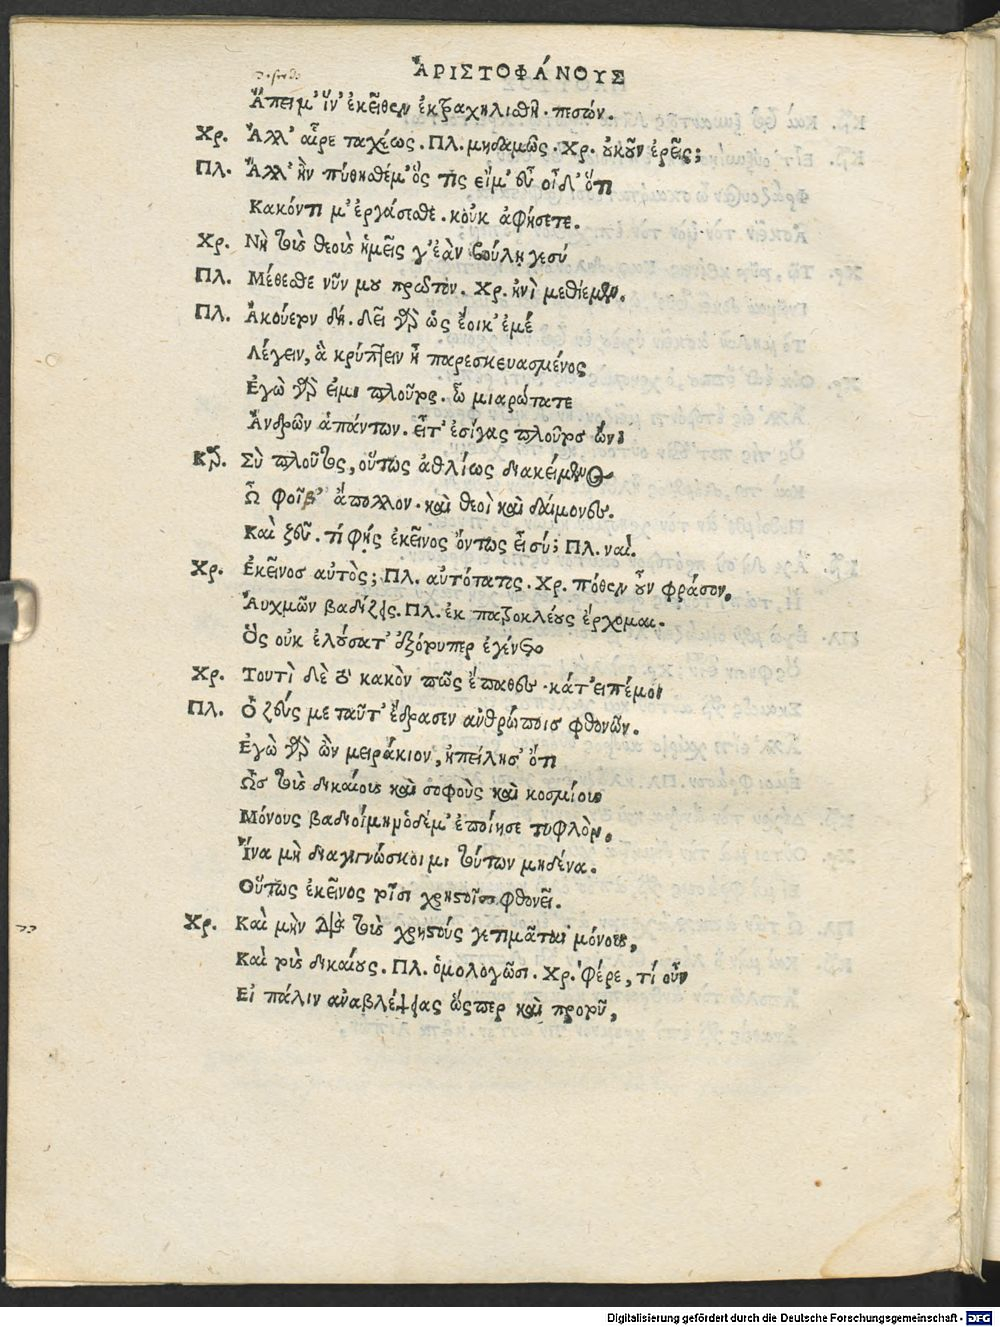 ἈΡΙΣΤΟΦΆΝΟΥΣ
Ἄπειμ' ἵν' ἐκεῖθεν ἐκτραχηλισθῇ. πεσών.
Χρ. Ἀλλ' αἶρε ταχέως. Πλ. μηδαμῶς. Χρ. οὐκοῦν ἐρεῖς;
Πλ. Ἀλλ' ἢν πύθησθέ μ' ὅς τις εἴμ' εὖ οἶδ' ὅτι
Κακόν τι μ' ἐργάσεσθε. κοὐκ ἀφήσετε.
Χρ. Νὴ τοὺς θεοὺς ἡμεῖς γ' ἐὰν βούλῃ γε σύ
Πλ. Μέθεσθε νῦν μου πρῶτον. Χρ. ἠνὶ μεθίεμεν.
Πλ. Ἀκούετον δή. δεῖ γὰρ ὡς ἔοικ' ἐμέ
Λέγειν, ἃ κρύπτειν ἦ παρεσκευασμένος
Ἐγὼ γάρ εἰμι πλοῦτος. ὦ μιαρώτατε
Ἀνδρῶν ἁπάντων. εἶτ' ἐσίγας πλοῦτοσ ὤν;
Κα. Σὺ πλοῦτος, οὕτως ἀθλίως διακείμενος
Ὦ φοῖβ' ἄπολλον. καὶ θεοὶ καὶ δαίμονες.
Καὶ ζεῦ. τί φῄς ἐκεῖνος ὄντως εἶ σύ; Πλ. ναί.
Χρ. Ἐκεῖνοσ αὐτός; Πλ. αὐτότατος. Χρ. πόθεν οὖν φράσον.
Αὐχμῶν βαδίζεις. Πλ. ἐκ πατροκλέους ἔρχομαι.
Ὃς οὐκ ἐλούσατ' ἐξότουπερ ἐγένετο
Χρ. Τουτὶ δὲ τὸ κακὸν πῶς ἔπαθες. κάτ' ειπέ μοι
Πλ. Ὁ ζεύς με ταῦτ' ἔδρασεν ἀνθρώποισ φθονῶν.
Ἐγὼ γὰρ ὢν μειράκιον, ἠπείλησ' ὅτι
Ὡσ τοὺς δικαίους καὶ σοφοὺς καὶ κοσμίους
Μόνους βαδιοίμην ὁδέ μ' ἐποίησε τυφλόν.
Ἵνα μὴ διαγιγνώσκοιμι τούτων μηδένα.
Οὕτως ἐκεῖνος τοῖσι χρηστοῖσι φθονεῖ.
Χρ. Καὶ μὴν διὰ τοὺς χρηστούς γε τιμᾶται μόνους,
Καὶ τοὺς δικαίους. Πλ. ὁμολογῶσι. Χρ. φέρε, τί οὖν
Εἰ πάλιν ἀναβλέψειας ὥσπερ καὶ προτοῦ,
Digitalisierung gefördert durch die Deutsche Forschungsgemeinschaft - DFG